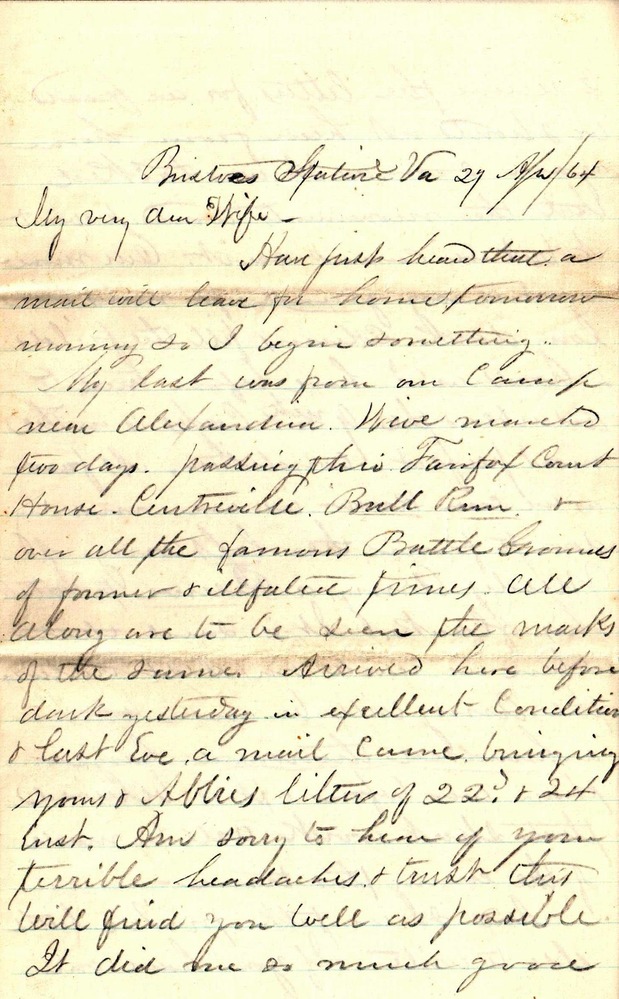 Bristoes Station Va 29 Apr/64
My very dear Wife -
Have just heard that a
mail will leave for home tomorrow
morning so I begin something..
My last was from our Camp
near Alexandria. We've marched
two days. passing thro Fairfox Court
House. Centreville. Bull Run &
over all the famous Battle Grounds
of former & illfated times. All
along are to be seen the marks
of the same. Arrived here before
dark yesterday in excellent Condition
& last Eve. a mail Came. bringing
yours & Abbies letter of 22d. & 24
inst. Am sorry to hear of your
terrible headaches. & trust this
will find you well as possible
It did me so much good